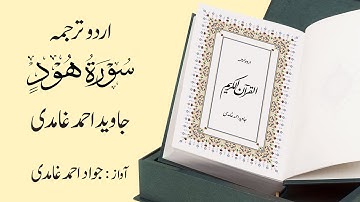 اردو ترجمہ
سُوْرَةُ هُوْدٍ
جاوید احمد غامدی
آواز : جواد احمد غامدی
اردو ترجمہ
القرآن الکریم
جاوید احمد غامدی